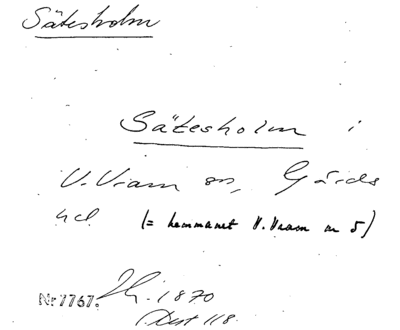 Sätesholm
Sätesholm i
V. Vram sn, Gärds
hd (= hemmanet V. Vram nr 5)
Nr 7767. 1870
118.